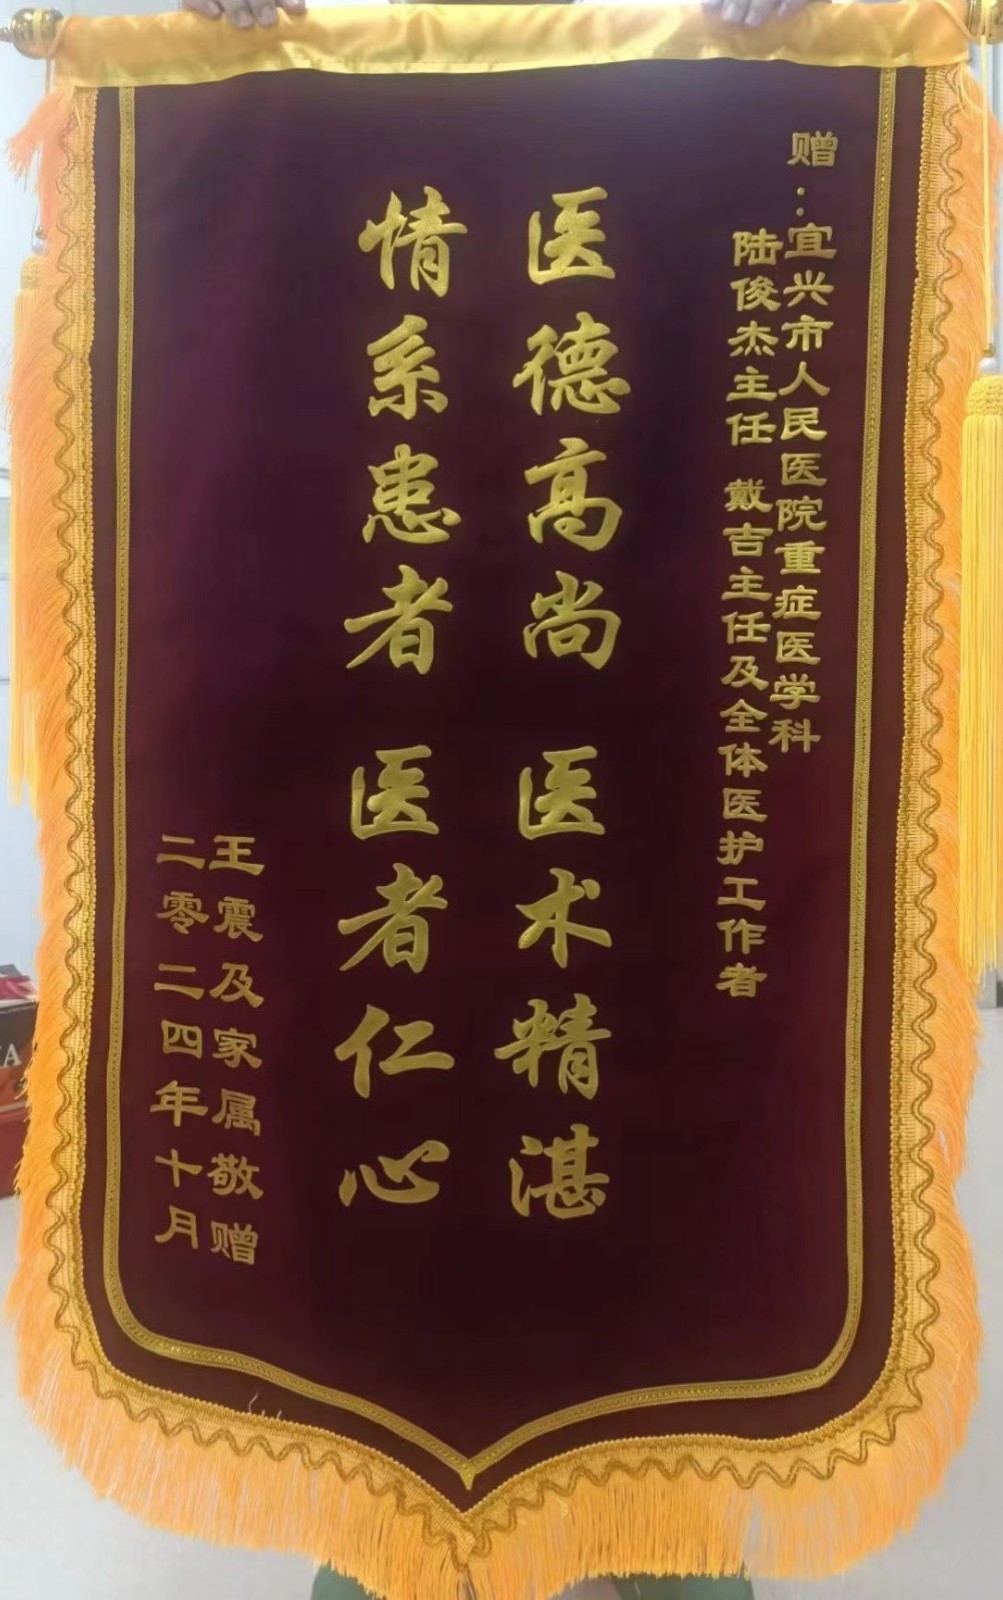 赠：宜兴市人民医院重症医学科
陆俊杰主任 戴吉主任及全体医护工作者
医德高尚 医术精湛
情系患者 医者仁心
王震及家属敬赠
二零二四年十月